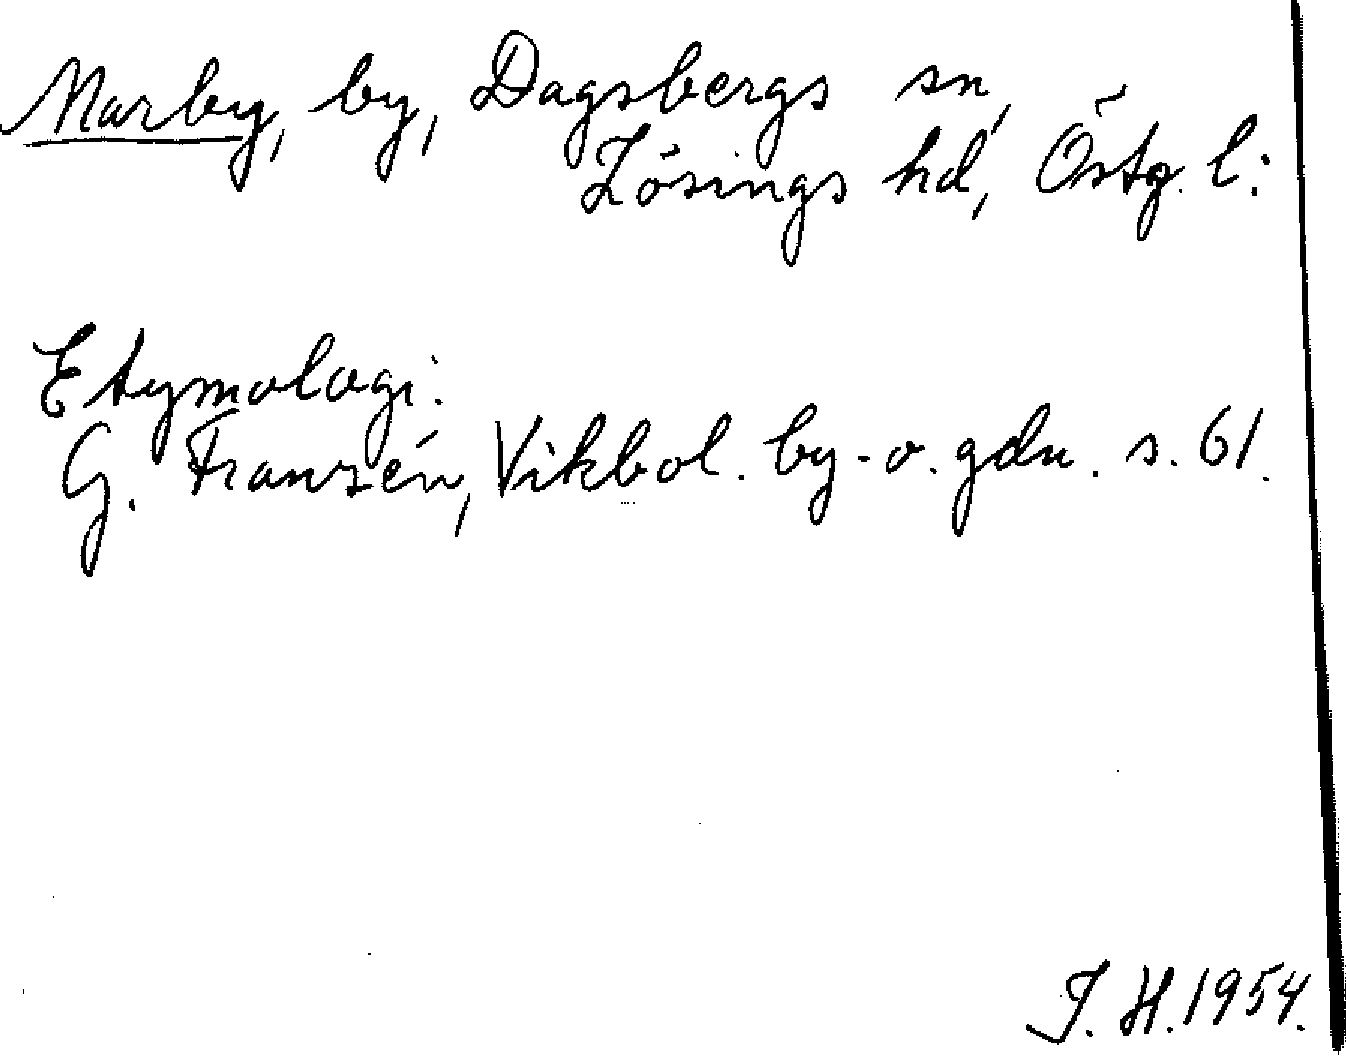 Marby, by, Dagsbergs sn,
Lösings hd, Östg. l:
Etymologi:
G. Franzén, Vikbol. by- o. gdn. s. 61.
J. H. 1954.